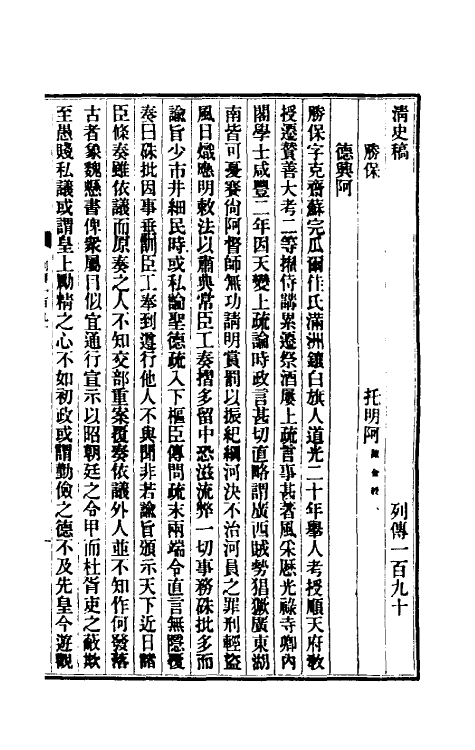 清史稿 列傳一百九十
勝保 托明阿 陳金綬
德興阿
勝保字克齋蘇完瓜爾佳氏滿洲鑲白旗人道光二十年舉人考授順天府教
授遷贊善大考二等擢侍講累遷祭酒屢上疏言事甚著風采歷光祿寺卿內
閣學士咸豐二年因天變上疏論時政言甚切直略謂廣西賊勢猖獗廣東湖
南皆可憂賽尙阿督師無功請明賞罰以振紀綱河決不治河員之罪刑輕盜
風日熾應明敕法以肅典常臣工奏摺多留中恐滋流弊一切事務硃批多而
諭旨少市井細民時或私論聖德疏入下樞臣傳問疏末兩端令直言無隱覆
奏曰硃批因事垂訓臣工奉到遵行他人不與聞非若諭旨頒示天下近日諸
臣條奏雖依議而原奏之人不知交部重案覆奏依議外人並不知作何發落
古者象魏懸書俾衆屬目似宜通行宣示以昭朝廷之令甲而杜胥吏之蔽欺
至愚賤私議或謂皇上勵精之心不如初政或謂勤儉之德不及先皇今遊觀